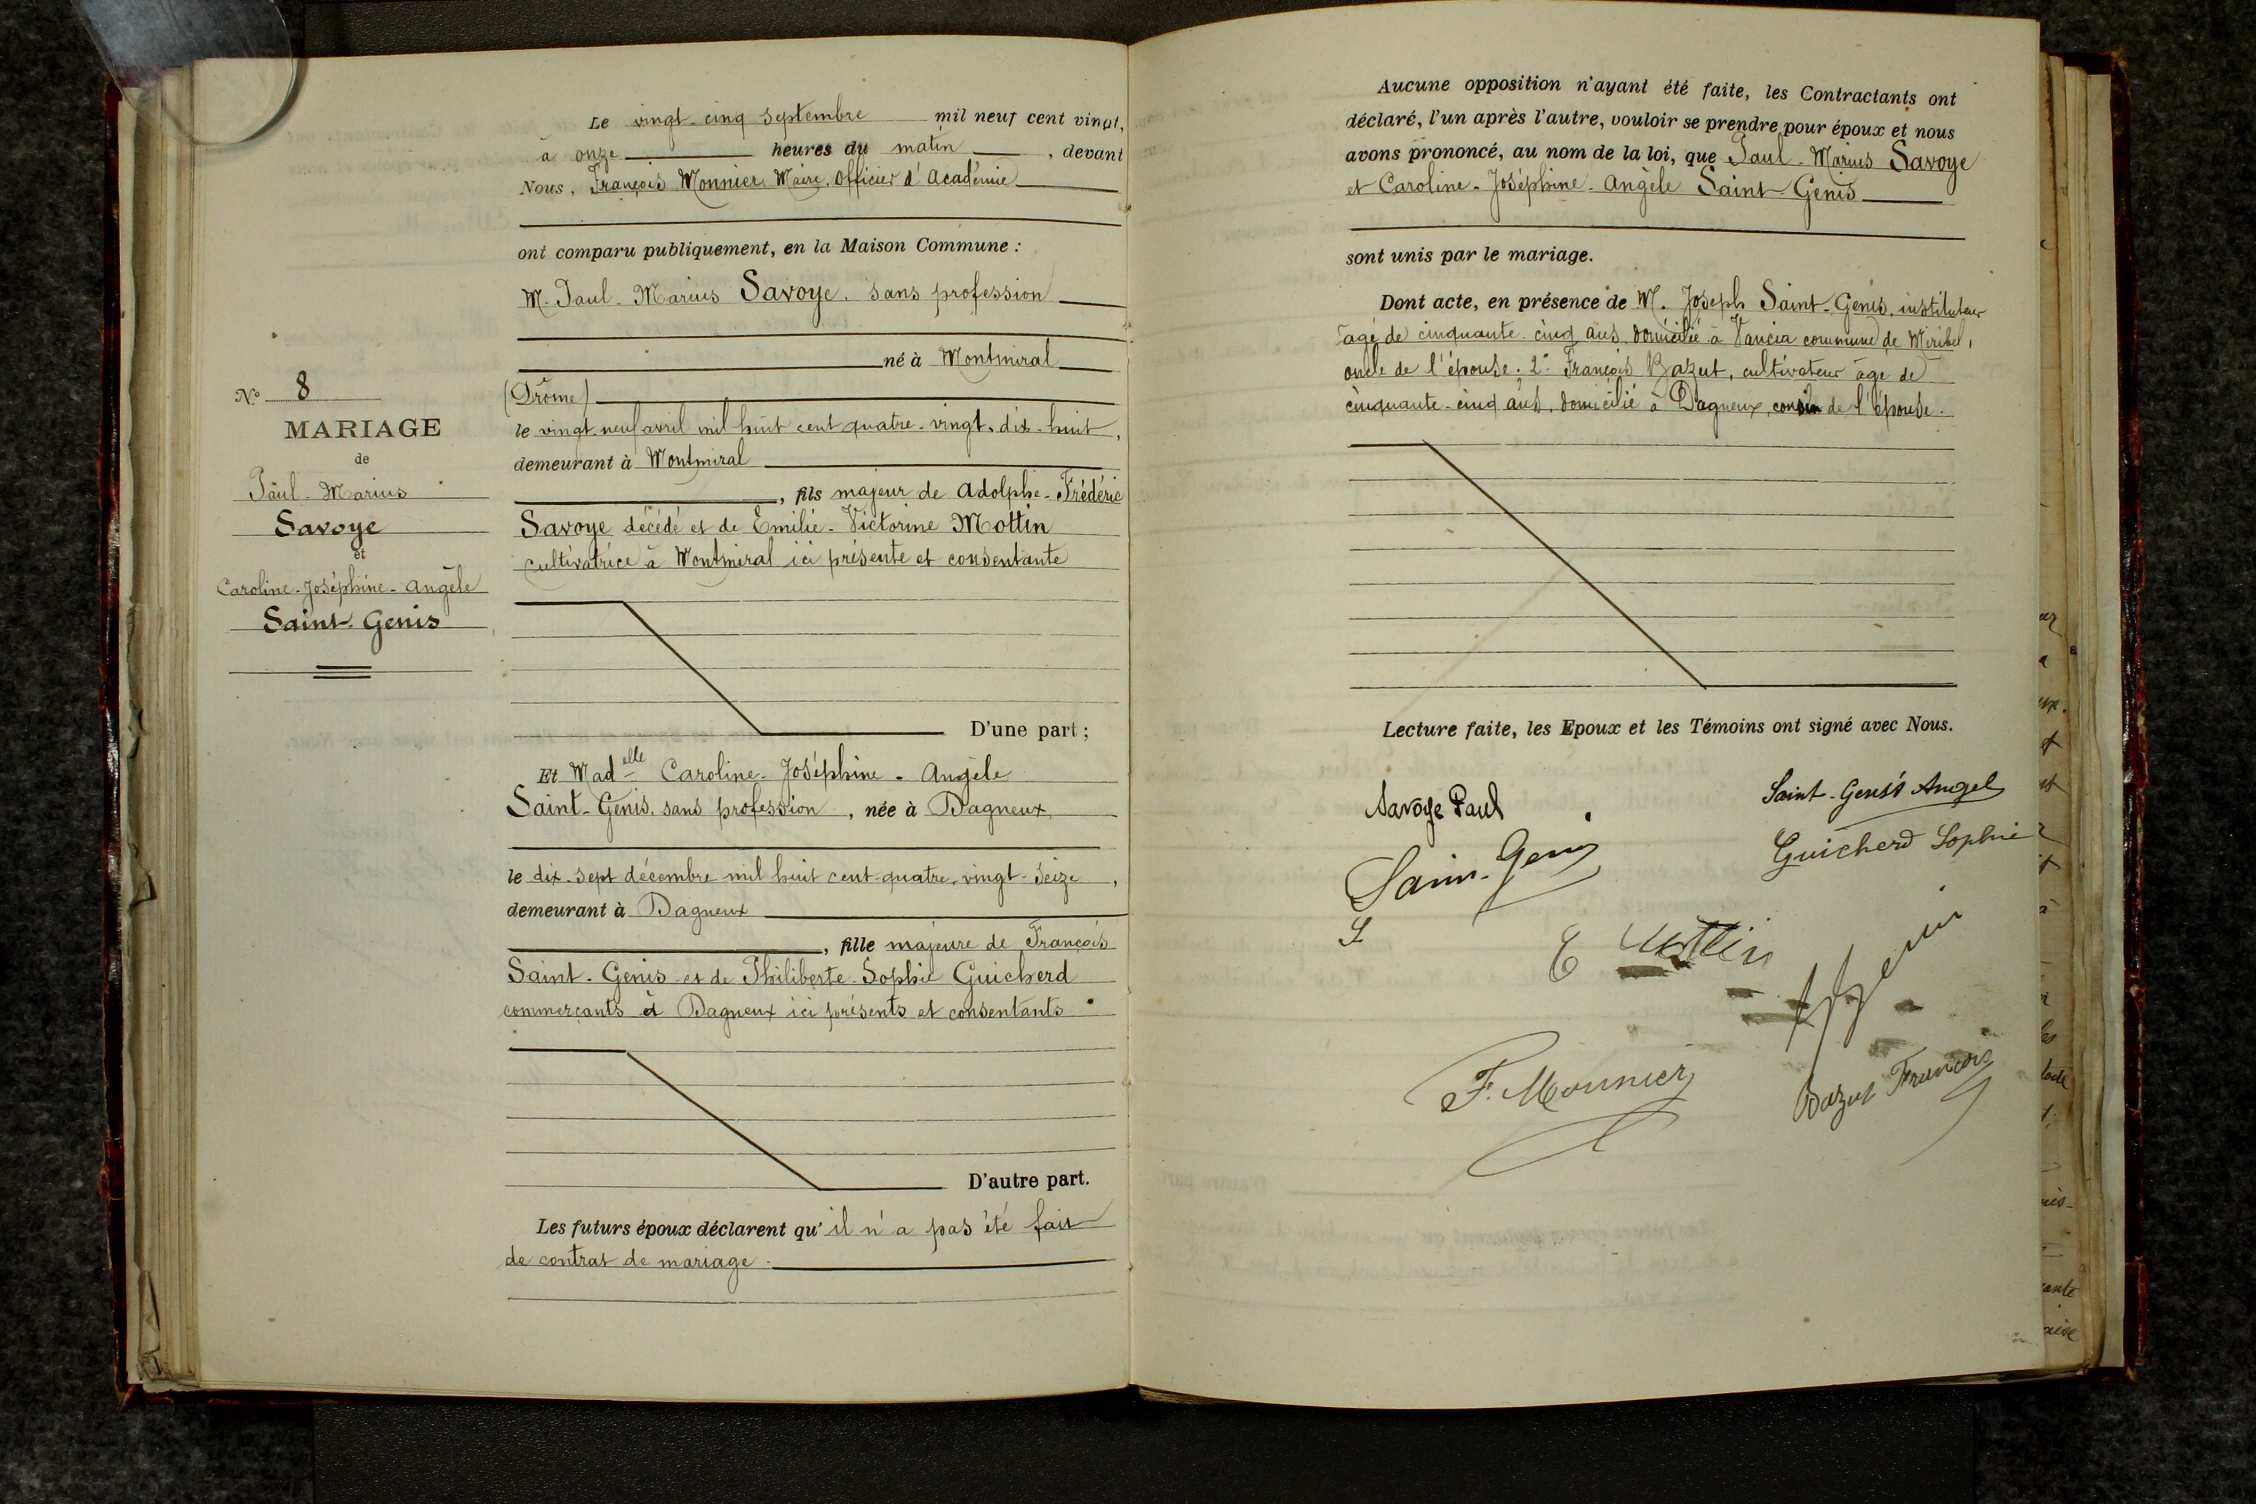 Le vingt-cinq septembre mil neuf cent vingt,
à onze heures du matin, devant
Nous, François Monnier, Maire, Officier d'Académie
ont comparu publiquement, en la Maison Commune :
M. Paul-Marius Savoye, sans profession
né à Montmiral
(Drôme)
le vingt-neuf avril mil huit cent quatre-vingt-dix-huit,
demeurant à Montmiral
, fils majeur de Adolphe-Frédéric
Savoye décédé et de Emilie-Victorine Mottin
cultivatrice à Montmiral ici présente et consentante
D'une part ;
Et Madelle Caroline-Joséphine-Angèle
Saint-Genis, sans profession, née à Dagneux
le dix-sept décembre mil huit cent-quatre-vingt-seize,
demeurant à Dagneux
, fille majeure de François
Saint-Genis et de Philiberte-Sophie Guicherd
commerçants à Dagneux ici présents et consentants
D'autre part.
Les futurs époux déclarent qu'il n'a pas été fait
de contrat de mariage.
No 8
MARIAGE
de
Paul-Marius
Savoye
et
Caroline-Joséphine-Angèle
Saint-Genis
Aucune opposition n'ayant été faite, les Contractants ont
déclaré, l'un après l'autre, vouloir se prendre pour époux et nous
avons prononcé, au nom de la loi, que Paul-Marius Savoye
et Caroline-Joséphine-Angèle Saint-Genis
sont unis par le mariage.
Dont acte, en présence de M. Joseph Saint-Genis, instituteur
âgé de cinquante-cinq ans, domicilié à Vancia commune de Miribel,
oncle de l'épouse. 2° François Bazut, cultivateur âgé de
cinquante-cinq ans, domicilié à Dagneux, cousin de l'épouse.
Lecture faite, les Epoux et les Témoins ont signé avec Nous.
Savoye Paul
Saint-Genis Angel
Saint-Genis
Guicherd Sophie
E Mottin
F. Monnier
Bazut François